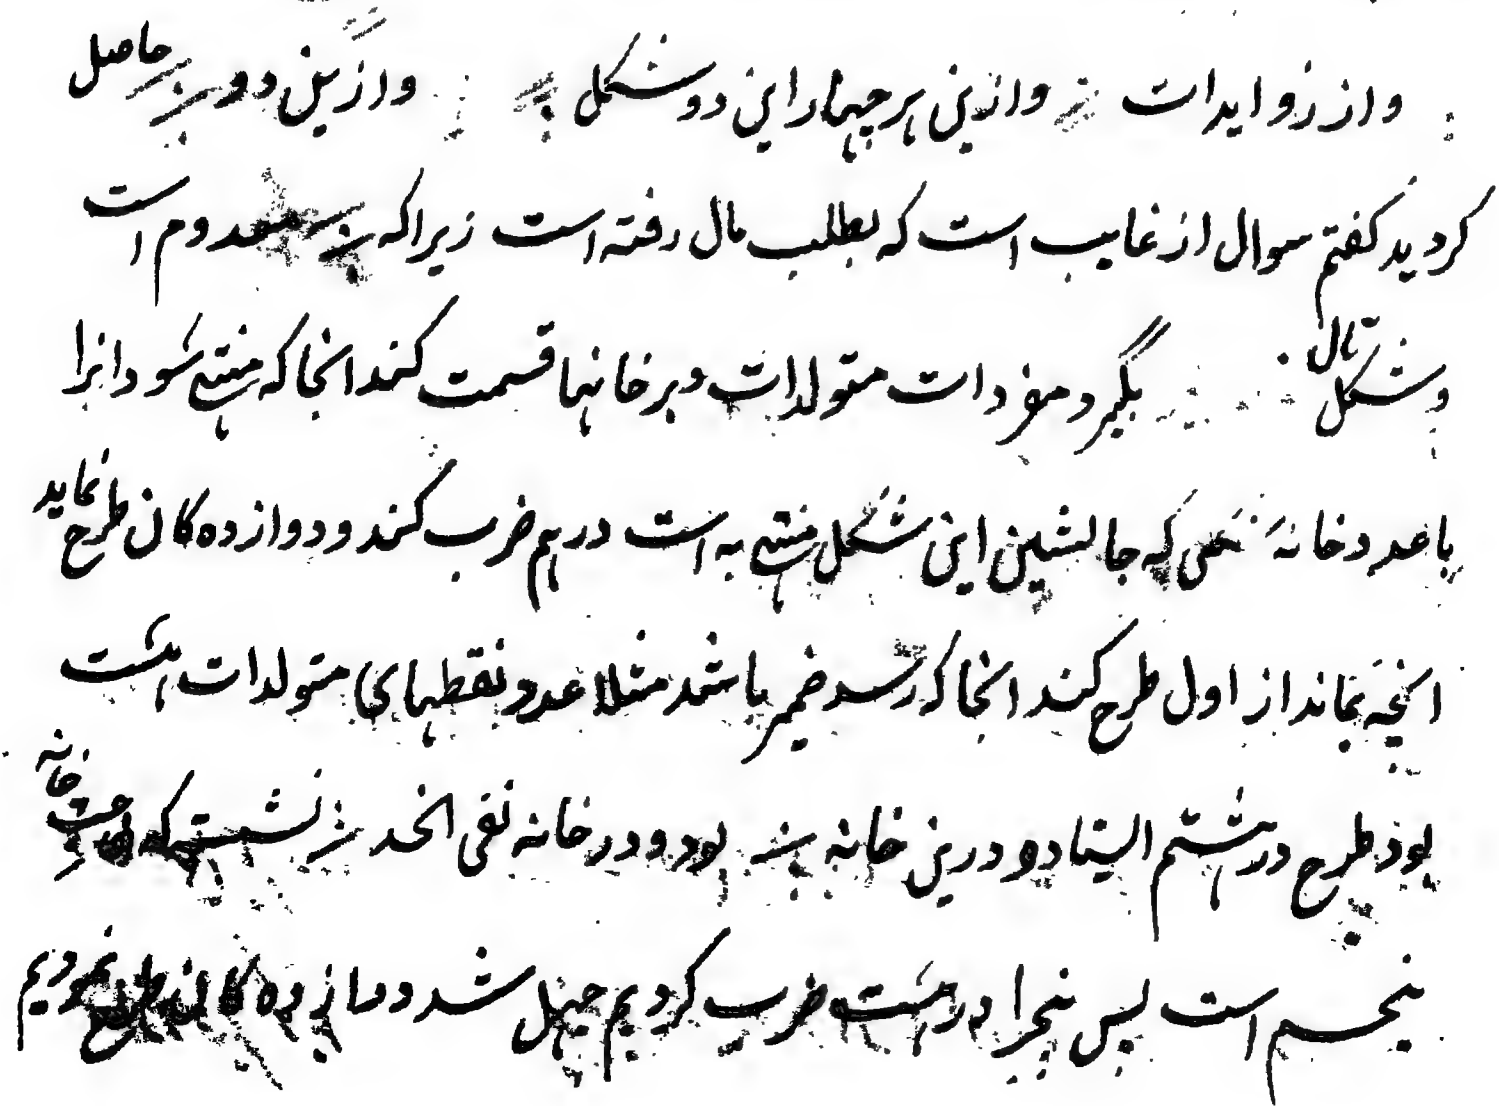 و از زوایدات و ازین هر چهار این دو شکل و ازین دو حاصل
کردید کفتم سوال از غایب است که بطلب مال رفته است زیرا که معدوم است
و شکل تال بگیرد مفردات متولدات و بر خانهها قسمت کند انجا که منتهی شود انرا
با عدد خانه که جالشین این شکل منتهی به است در هم ضرب کند و دوازده کان طرح نماید
انچه بماند از اول طرح کند انجا که رسد ضمیر باشد مثلا عدد نقطهای متولدات هشت
بود طرح در هشتم ایستاد و درین خانه بود و در خانه نقی الخد نشسته که صاحب خانه
پنجم است پس پنج را در هشت ضرب کردیم چهل شد دوازده کان طرح نمودیم